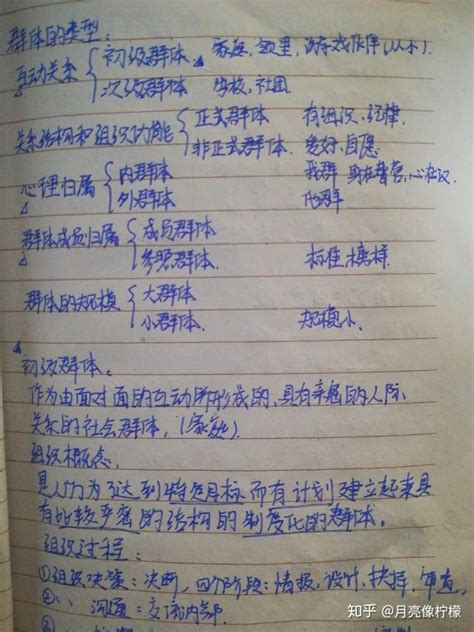 群体的类型：
互动关系 { 初级群体. 家庭, 邻里, 游戏伙伴(从小).
次级群体 学校, 社团
关系结构和组织功能 { 正式群体 有组织、纪律
非正式群体 爱好、自愿
心理归属 { 内群体 我群 身在曹营,心在汉
外群体 他群
群体成员归属 { 成员群体
参照群体. 标准、榜样
群体的规模 { 大群体
小群体. 规模小.
初级群体.
作为由面对面的互动所形成的,具有亲密的人际
关系的社会群体, (家庭)
组织概念.
是人们为了达到特定目标而有计划建立起来具
有比较严密的结构的制度化的群体。
组织过程：
①组织决策：决断, 四个阶段：情报, 设计, 抉择, 审查.
②、、沟通：交流内部
知乎 @月亮像柠檬